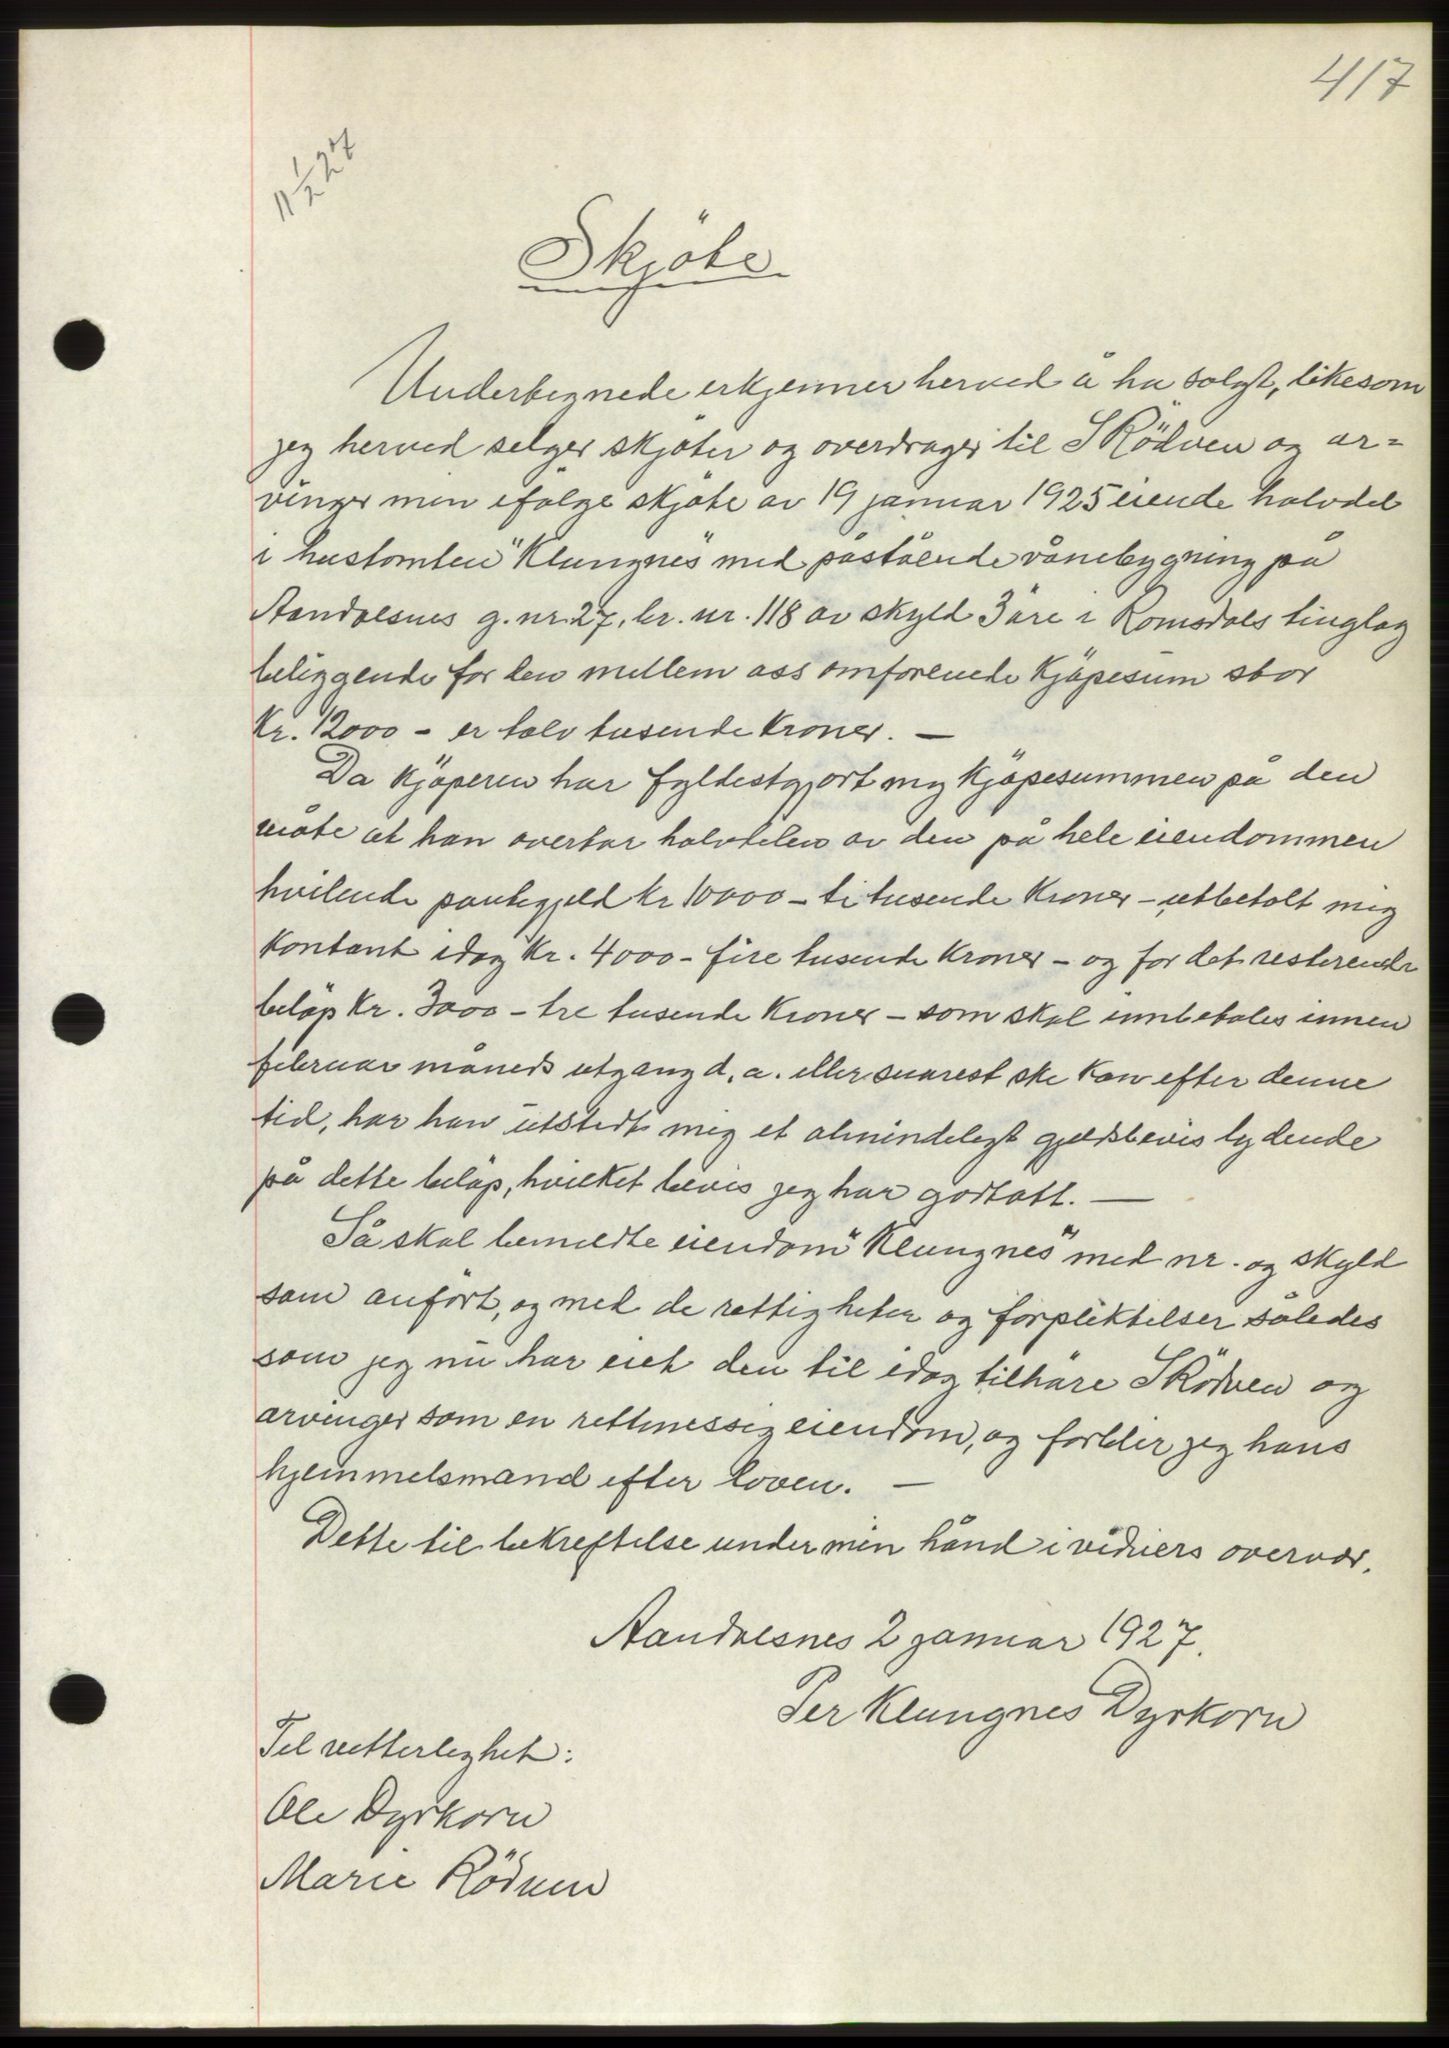 417
11/1 27
2
Skjöte
Undertegnede erkjenner herved å ha solgt, likesom
jeg herved selger skjöter og overdrager til S Rödven og ar=
vinger min ifölge skjöte av 19 januar 1925 eiende halvdel
i hustomten "Klungnes" med påstående vånebygning på
Aandalsnes g. nr. 27, br. nr. 118 av skyld 3 öre i Romsdals tinglag
beliggende for den mellem oss omforenede Kjöpesum stor
Kr. 12000 - er tolv tusende Kroner. —
Da Kjöperen har fyldestgjort mig Kjöpesummen på den
måte at han overtar halvdelen av den på hele eiendommen
hvilende pantegjeld Kr 10000 - ti tusende Kroner - utbetalt mig
Kontant idag Kr. 4000 - fire tusende Kroner - og for det resterende
belöp Kr. 3000 - tre tusende Kroner - som skal innbetales innen
februar måneds utgang d. a. eller snarest ske Kan efter denne
tid, har han utstedt mig et almindeligt gjeldsbevis lydende
på dette belöp, hvilket bevis jeg har godtatt. —
Så skal bemeldte eiendom "Klungnes" med nr. og skyld
som anfört, og med de rettigheter og forpliktelser således
som jeg nu har eiet den til idag tilhöre S Rödven og
arvinger som en rettmessig eiendom, og forblir jeg hans
hjemmelsmand efter loven. —
Dette til bekreftelse under min hånd i vidners overvær.
Aandalsnes 2 januar 1927.
Per Klungnes Dyrkorn
Til vitterlighet:
Ole Dyrkorn
Marie Rödven